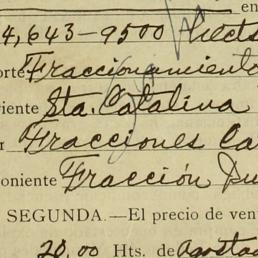 en
4,643-9500 Hects
orte Fraccionamiento
riente Sta. Catalina
r Fracciones Ca
oniente Fracción Du
SEGUNDA.—El precio de ven
20.00 Hts. de Agosto